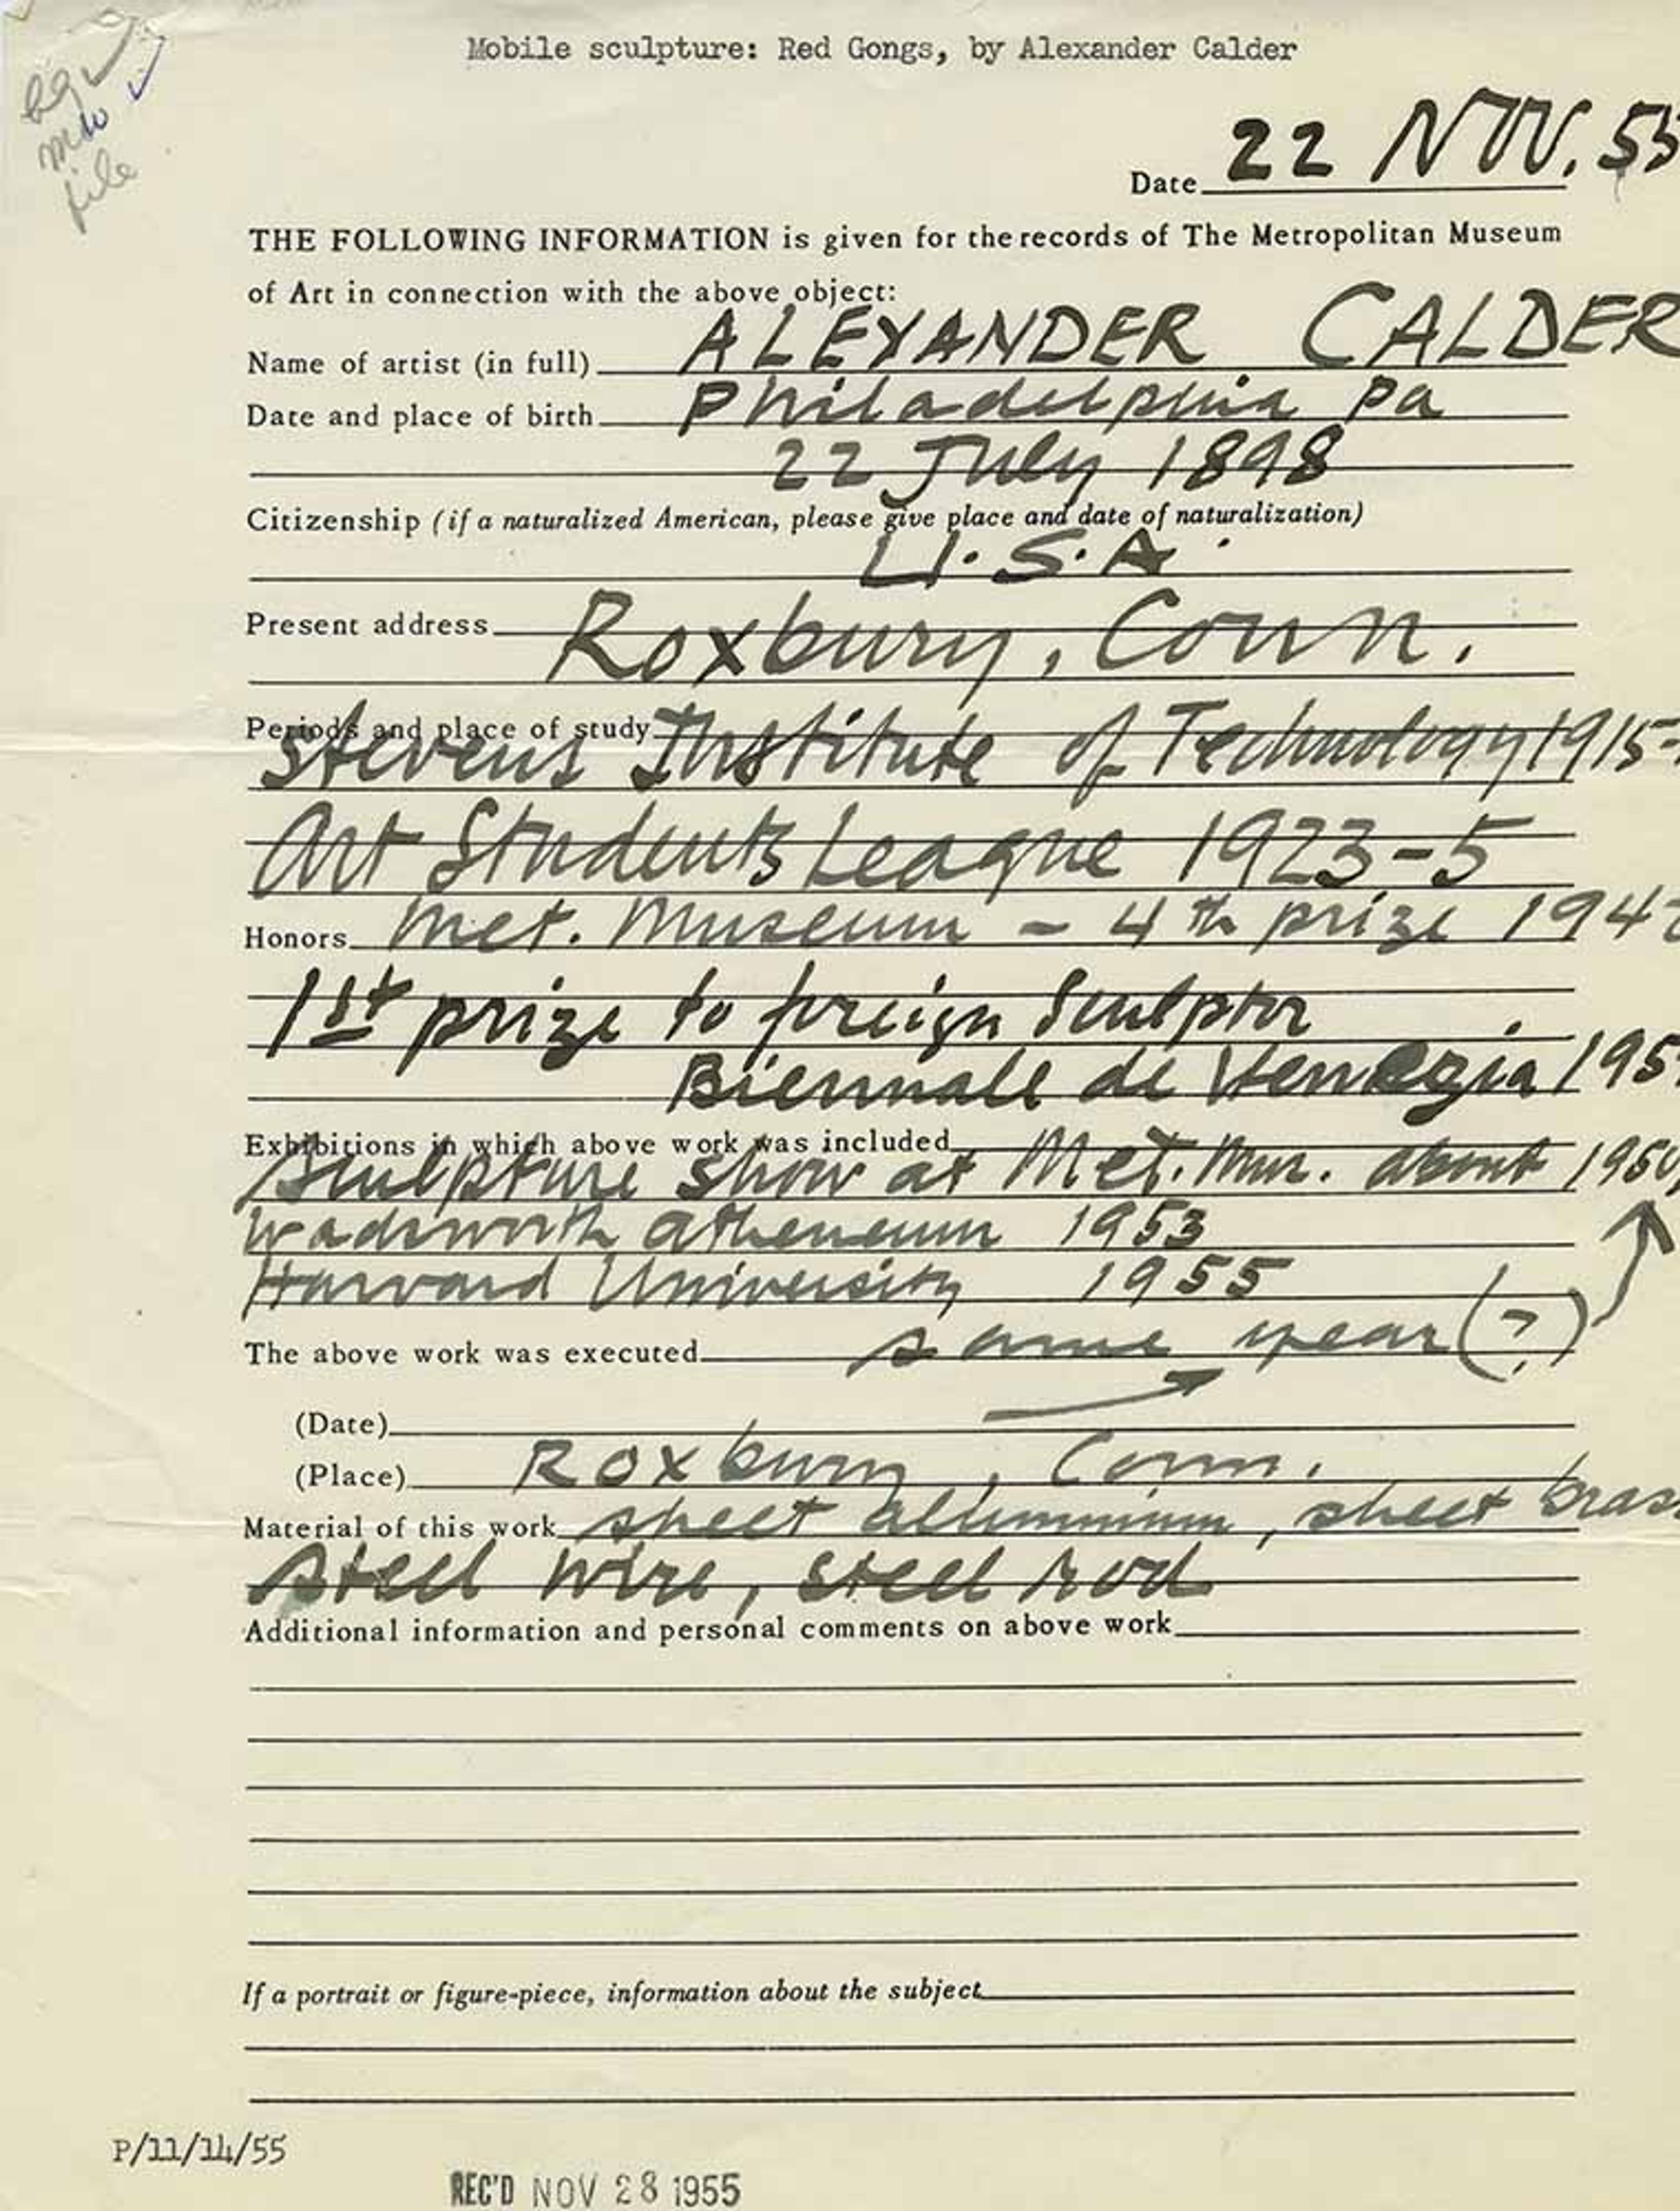 Mobile sculpture: Red Gongs, by Alexander Calder
file
Date 22 NOV. 55
THE FOLLOWING INFORMATION is given for the records of The Metropolitan Museum
of Art in connection with the above object:
Name of artist (in full) ALEXANDER CALDER
Date and place of birth Philadelphia Pa
22 July 1898
Citizenship (if a naturalized American, please give place and date of naturalization)
U.S.A.
Present address Roxbury, Conn.
Periods and place of study
Stevens Institute of Technology 1915-
Art Students League 1923-5
Honors Met. Museum - 4th prize 194
1st prize to foreign Sculptor
Biennale de Venezia 195
Exhibitions in which above work was included
Sculpture show at Met. Mus. about 1950,
Wadsworth Atheneum 1953
Harvard University 1955
The above work was executed same year (?)
(Date)
(Place) Roxbury, Conn.
Material of this work sheet alluminium, sheet brass
steel wire, steel rod
Additional information and personal comments on above work
If a portrait or figure-piece, information about the subject
P/11/14/55
REC'D NOV 28 1955